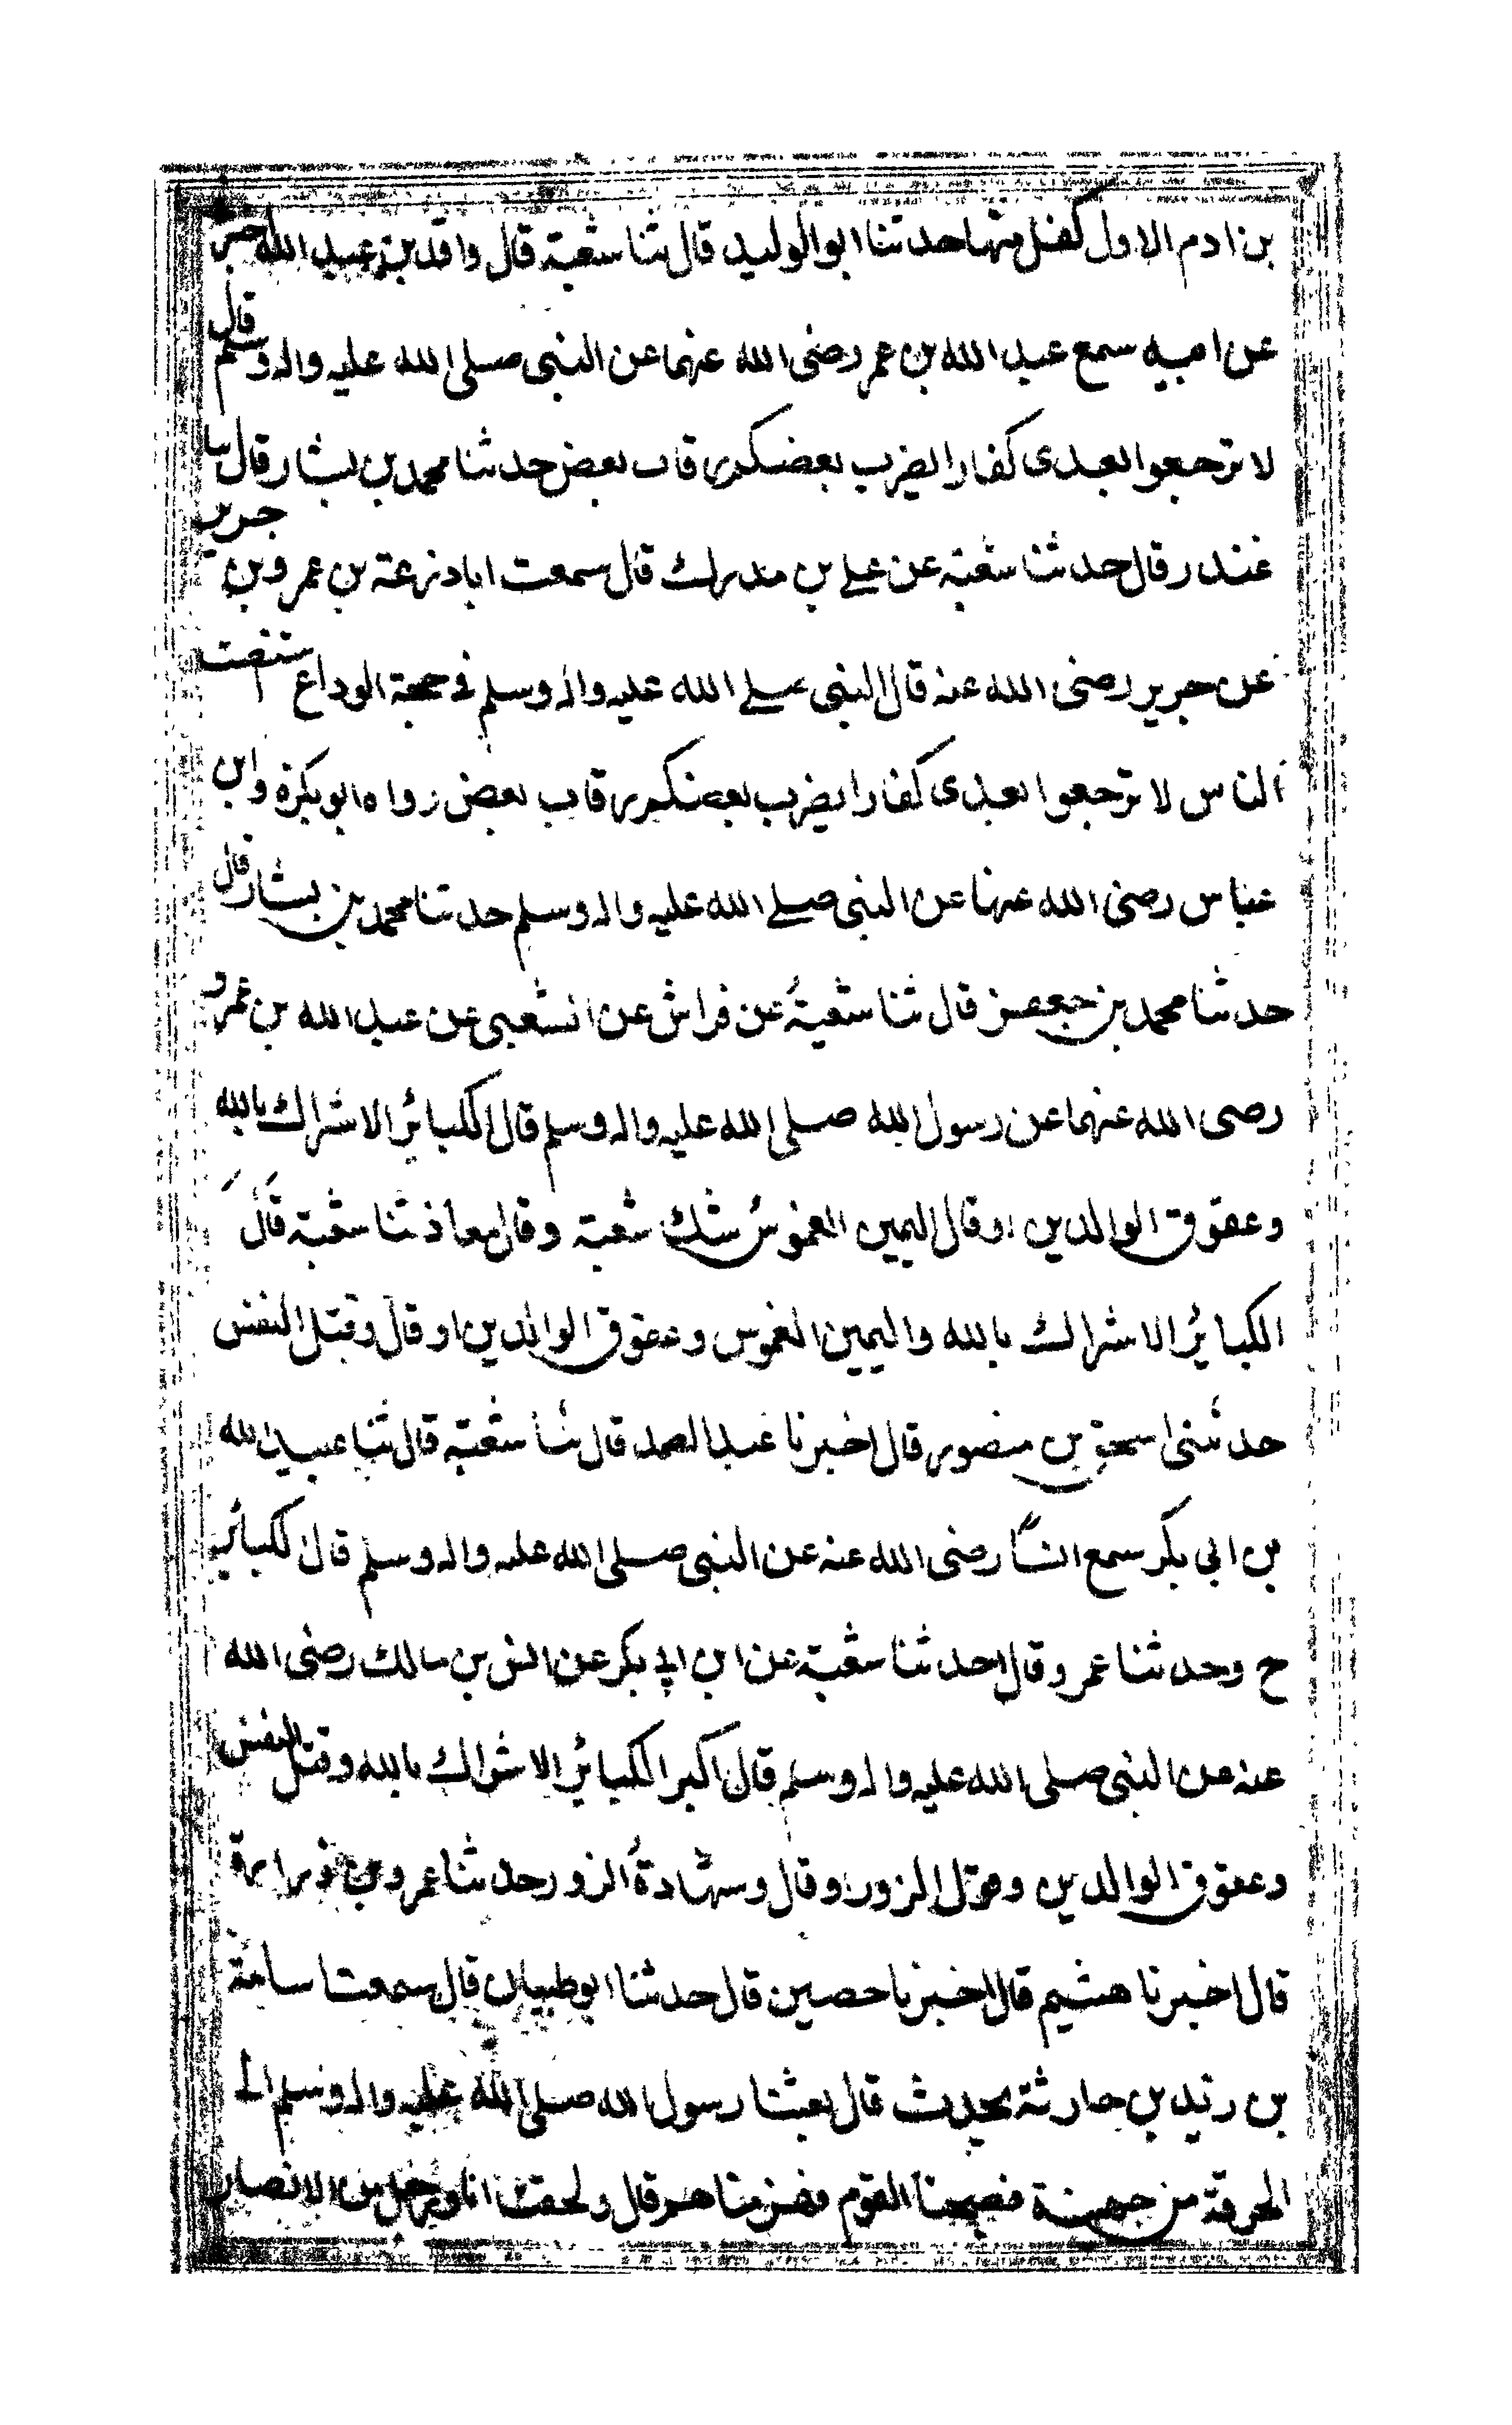 بن ادم الاول كفل منها حدثنا ابو الوليد قال ثنا شعبة قال واقد بن عبد الله اخبرني
عن ابيه سمع عبد الله بن عمر رضى الله عنهما عن النبى صلى الله عليه واله وسلم قال
لا ترجعوا بعدى كفارا يضرب بعضكم رقاب بعض حدثنا محمد بن بشار قال ثنا
غندر قال حدثنا شعبة عن على بن مدرك قال سمعت ابا زرعة بن عمرو بن جرير
عن جرير رضى الله عنه قال النبى صلے الله عليه واله وسلم فى حجة الوداع استنصت
الناس لا ترجعوا بعدى كفارا يضرب بعضكم رقاب بعض رواه ابو بكرة وابن
عباس رضى الله عنهما عن النبى صلے الله عليه واله وسلم حدثنا محمد بن بشار قال
حدثنا محمد بن جعفر قال ثنا شعبة عن فراش عن الشعبى عن عبد الله بن عمرو
رضى الله عنهما عن رسول الله صلى الله عليه واله وسلم قال الكبائر الاشراك بالله
وعقوق الوالدين او قال اليمين الغموس شك شعبة وقال معاذ ثنا شعبة قال
الكبائر الاشراك بالله واليمين الغموس وعقوق الوالدين او قال وقتل النفس
حدثنى اسحق بن منصور قال اخبرنا عبد الصمد قال ثنا شعبة قال ثنا عبيد الله
بن ابى بكر سمع انسا رضى الله عنه عن النبى صلى الله عليه واله وسلم قال الكبائر
ح وحدثنا عمرو قال حدثنا شعبة عن ابن ابى بكر عن انس بن مالك رضى الله
عنه عن النبى صلى الله عليه واله وسلم قال اكبر الكبائر الاشراك بالله وقتل النفس
وعقوق الوالدين وقول الزور او قال وشهادة الزور حدثنا عمرو بن زرارة
قال اخبرنا هشيم قال اخبرنا حصين قال حدثنا ابو ظبيان قال سمعت اسامة
بن زيد بن حارثة يحدث قال بعثنا رسول الله صلى الله عليه واله وسلم الى
الحرقة من جهينة فصبحنا القوم فهزمناهم قال ولحقت انا ورجل من الانصار